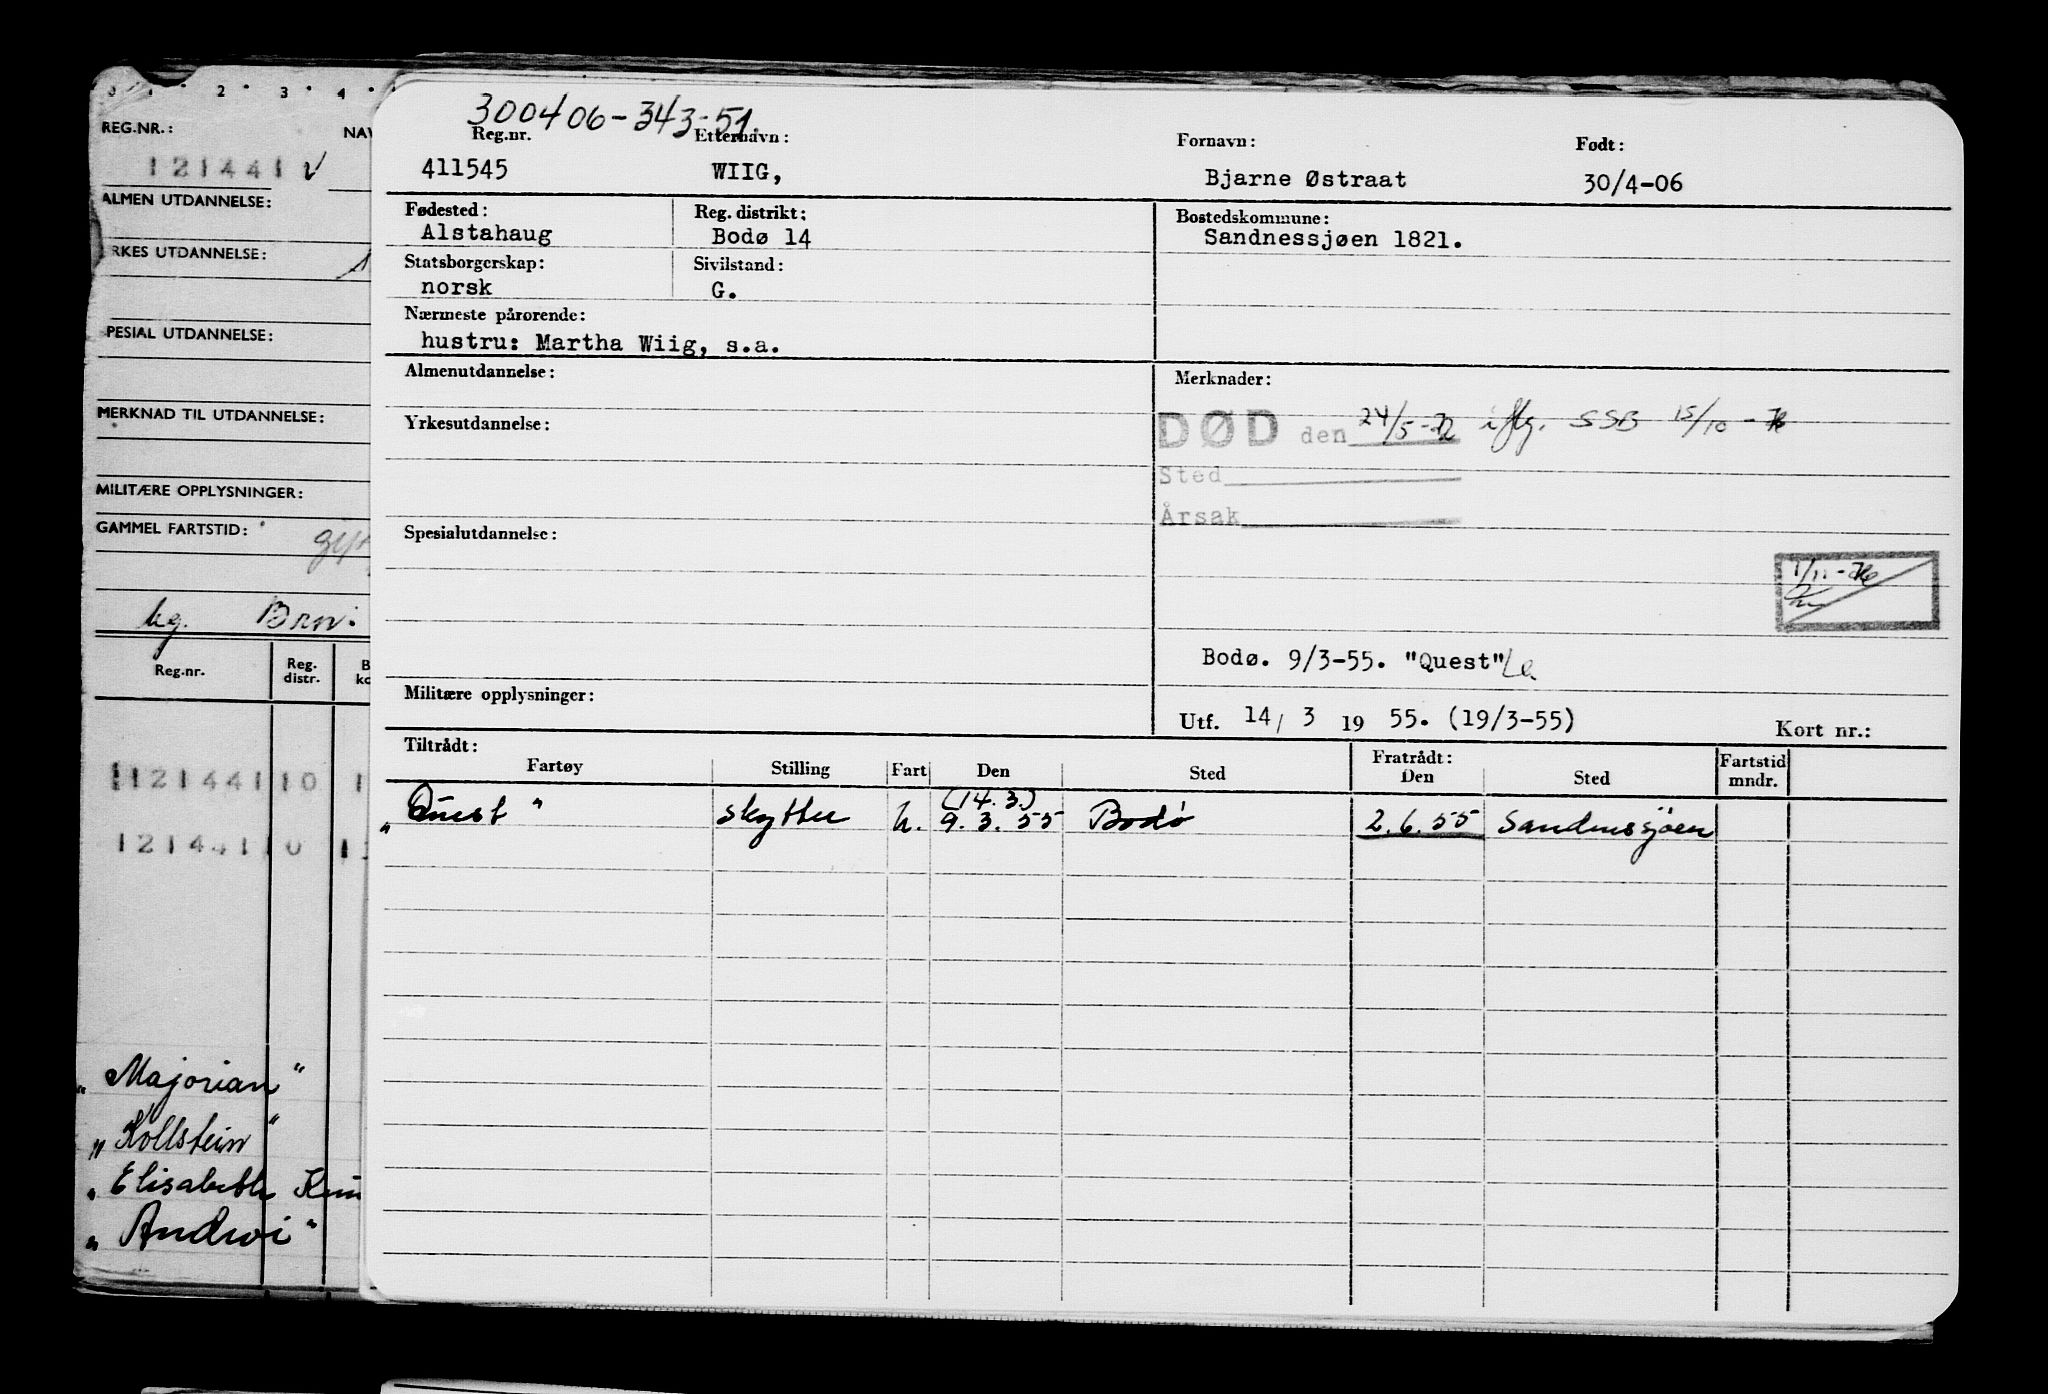 0 1 2 3 4
REG.NR.:
NAV
121441 V
ALMEN UTDANNELSE:
RKES UTDANNELSE:
PESIAL UTDANNELSE:
MERKNAD TIL UTDANNELSE:
MILITÆRE OPPLYSNINGER:
GAMMEL FARTSTID:
Reg.nr.
Reg. distr.
B
ko
121441 0 1
121441 0 1
"Majorian"
"Kollstein"
"Elisabeth
"Andwi"
300406-343-51
Reg.nr. Etternavn: Fornavn: Født:
411545 WIIG, Bjarne Østraat 30/4-06
Fødested: Reg. distrikt: Bostedskommune:
Alstahaug Bodø 14 Sandnessjøen 1821.
Statsborgerskap: Sivilstand:
norsk G.
Nærmeste pårørende:
hustru: Martha Wiig, s.a.
Almenutdannelse: Merknader:
DØD den 24/5-72 iflg. SSB 15/10-76
Yrkesutdannelse:
Sted
Årsak
Spesialutdannelse:
1/11-76
Bodø. 9/3-55. "Quest"
Militære opplysninger:
Utf. 14/ 3 19 55. (19/3-55) Kort nr.:
Tiltrådt: Fratrådt: Fartstid
Fartøy Stilling Fart Den Sted Den Sted mndr.
(14.3.)
"Quest" skytter h. 9.3.55 Bodø 2.6.55 Sandnessjøen